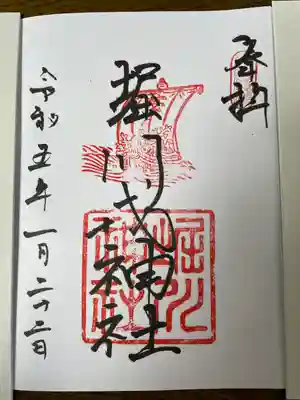 奉拝
堀川戎神社
令和五年一月二十二日